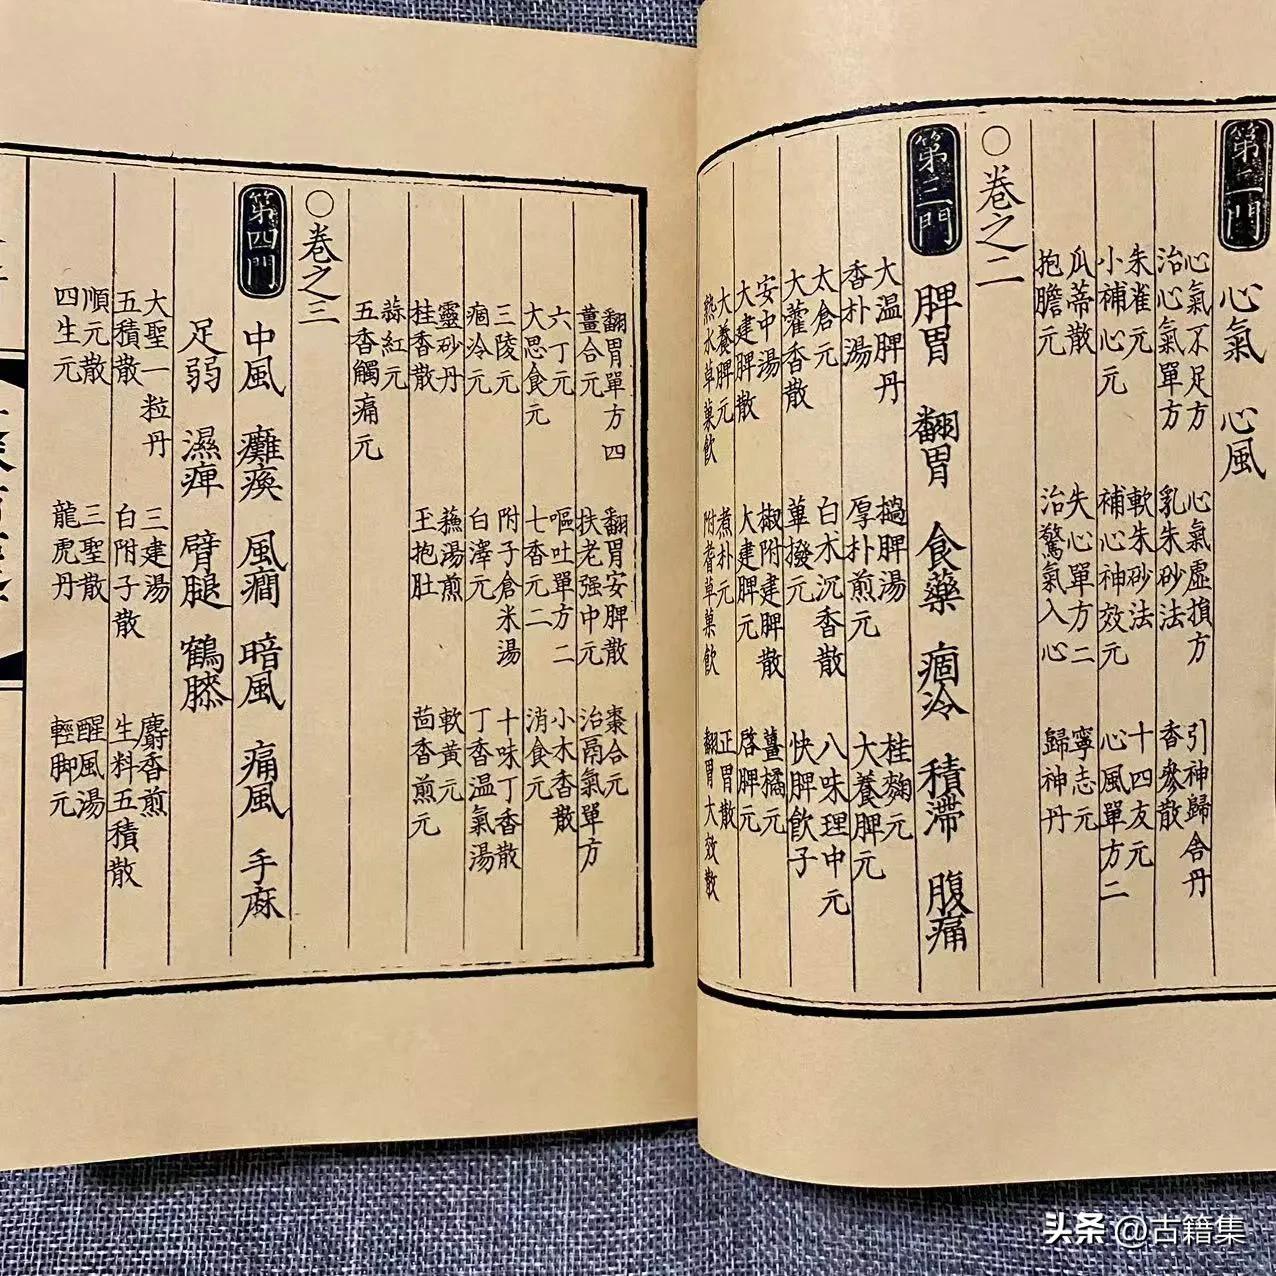 第二門 心氣 心風
心氣不足方 心氣虛損方 引神歸舍丹
治心氣單方 乳朱砂法 香參散
朱雀元 軟朱砂法 十四友元
小補心元 補心神效元 心風單方二
瓜蒂散 失心單方二 寧志元
抱膽元 治驚氣入心 歸神丹
○卷之二
第三門 脾胃 翻胃 食藥 痼冷 積滯 腹痛
大温脾丹 搥脾湯 桂麴元
香朴湯 厚朴煎元 大養脾元
太倉元 白朮沉香散 八味理中元
大藿香散 蓽撥元 快脾飲子
安中湯 椒附建脾散 薑橘元
大建脾散 大建脾元 啓脾元
大養脾元 煮朴元 正胃散
熟水草菓飲 草菓飲 翻胃大效散
翻胃單方四 翻胃安脾散 棗合元
薑合元 扶老强中元 治鬲氣單方
六丁元 嘔吐單方二 小木香散
大思食元 七香元二 消食元
三陵元 附子倉米湯 十味丁香散
痼冷元 白澤元 丁香温氣湯
靈砂丹 湯煎 軟黄元
桂香散 王抱肚 茴香煎元
蒜紅元
五香觸痛元
○卷之三
第四門 中風 癱瘓 風癎 暗風 痛風 手麻
足弱 濕痺 臂腿 鶴膝
大聖一粒丹 三建湯 麝香煎
五積散 白附子散 生料五積散
順元散 三聖散 醒風湯
四生元 龍虎丹 輕脚元
头条 @古籍集